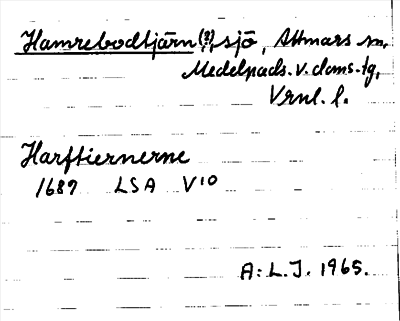 Hamrebodtjärn (?), sjö, Attmars sn,
Medelpads. v. doms. tg,
Vrnl. l.
Harftiernerne
1687 LSA V10
A: L. J. 1965.